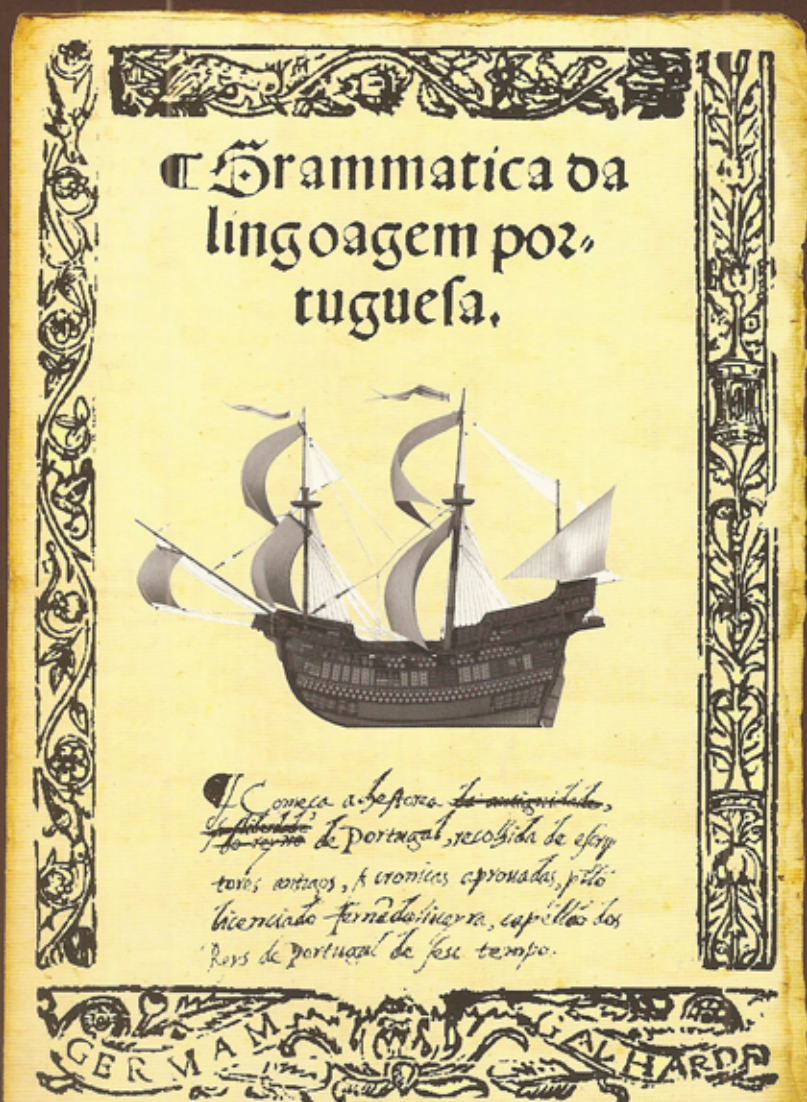 ¶ Grammatica da
lingoagem por⸗
tugueſa.
¶ Começa a hestorea da antiguidade,
do reyno de Portugal, recolhida de escrip
tores antigos, & cronicas aprouadas, pello
licenciado Fernãdoliueyra, capellão dos
Reys de Portugal de sese tempo.
GERMAM GALHARDE